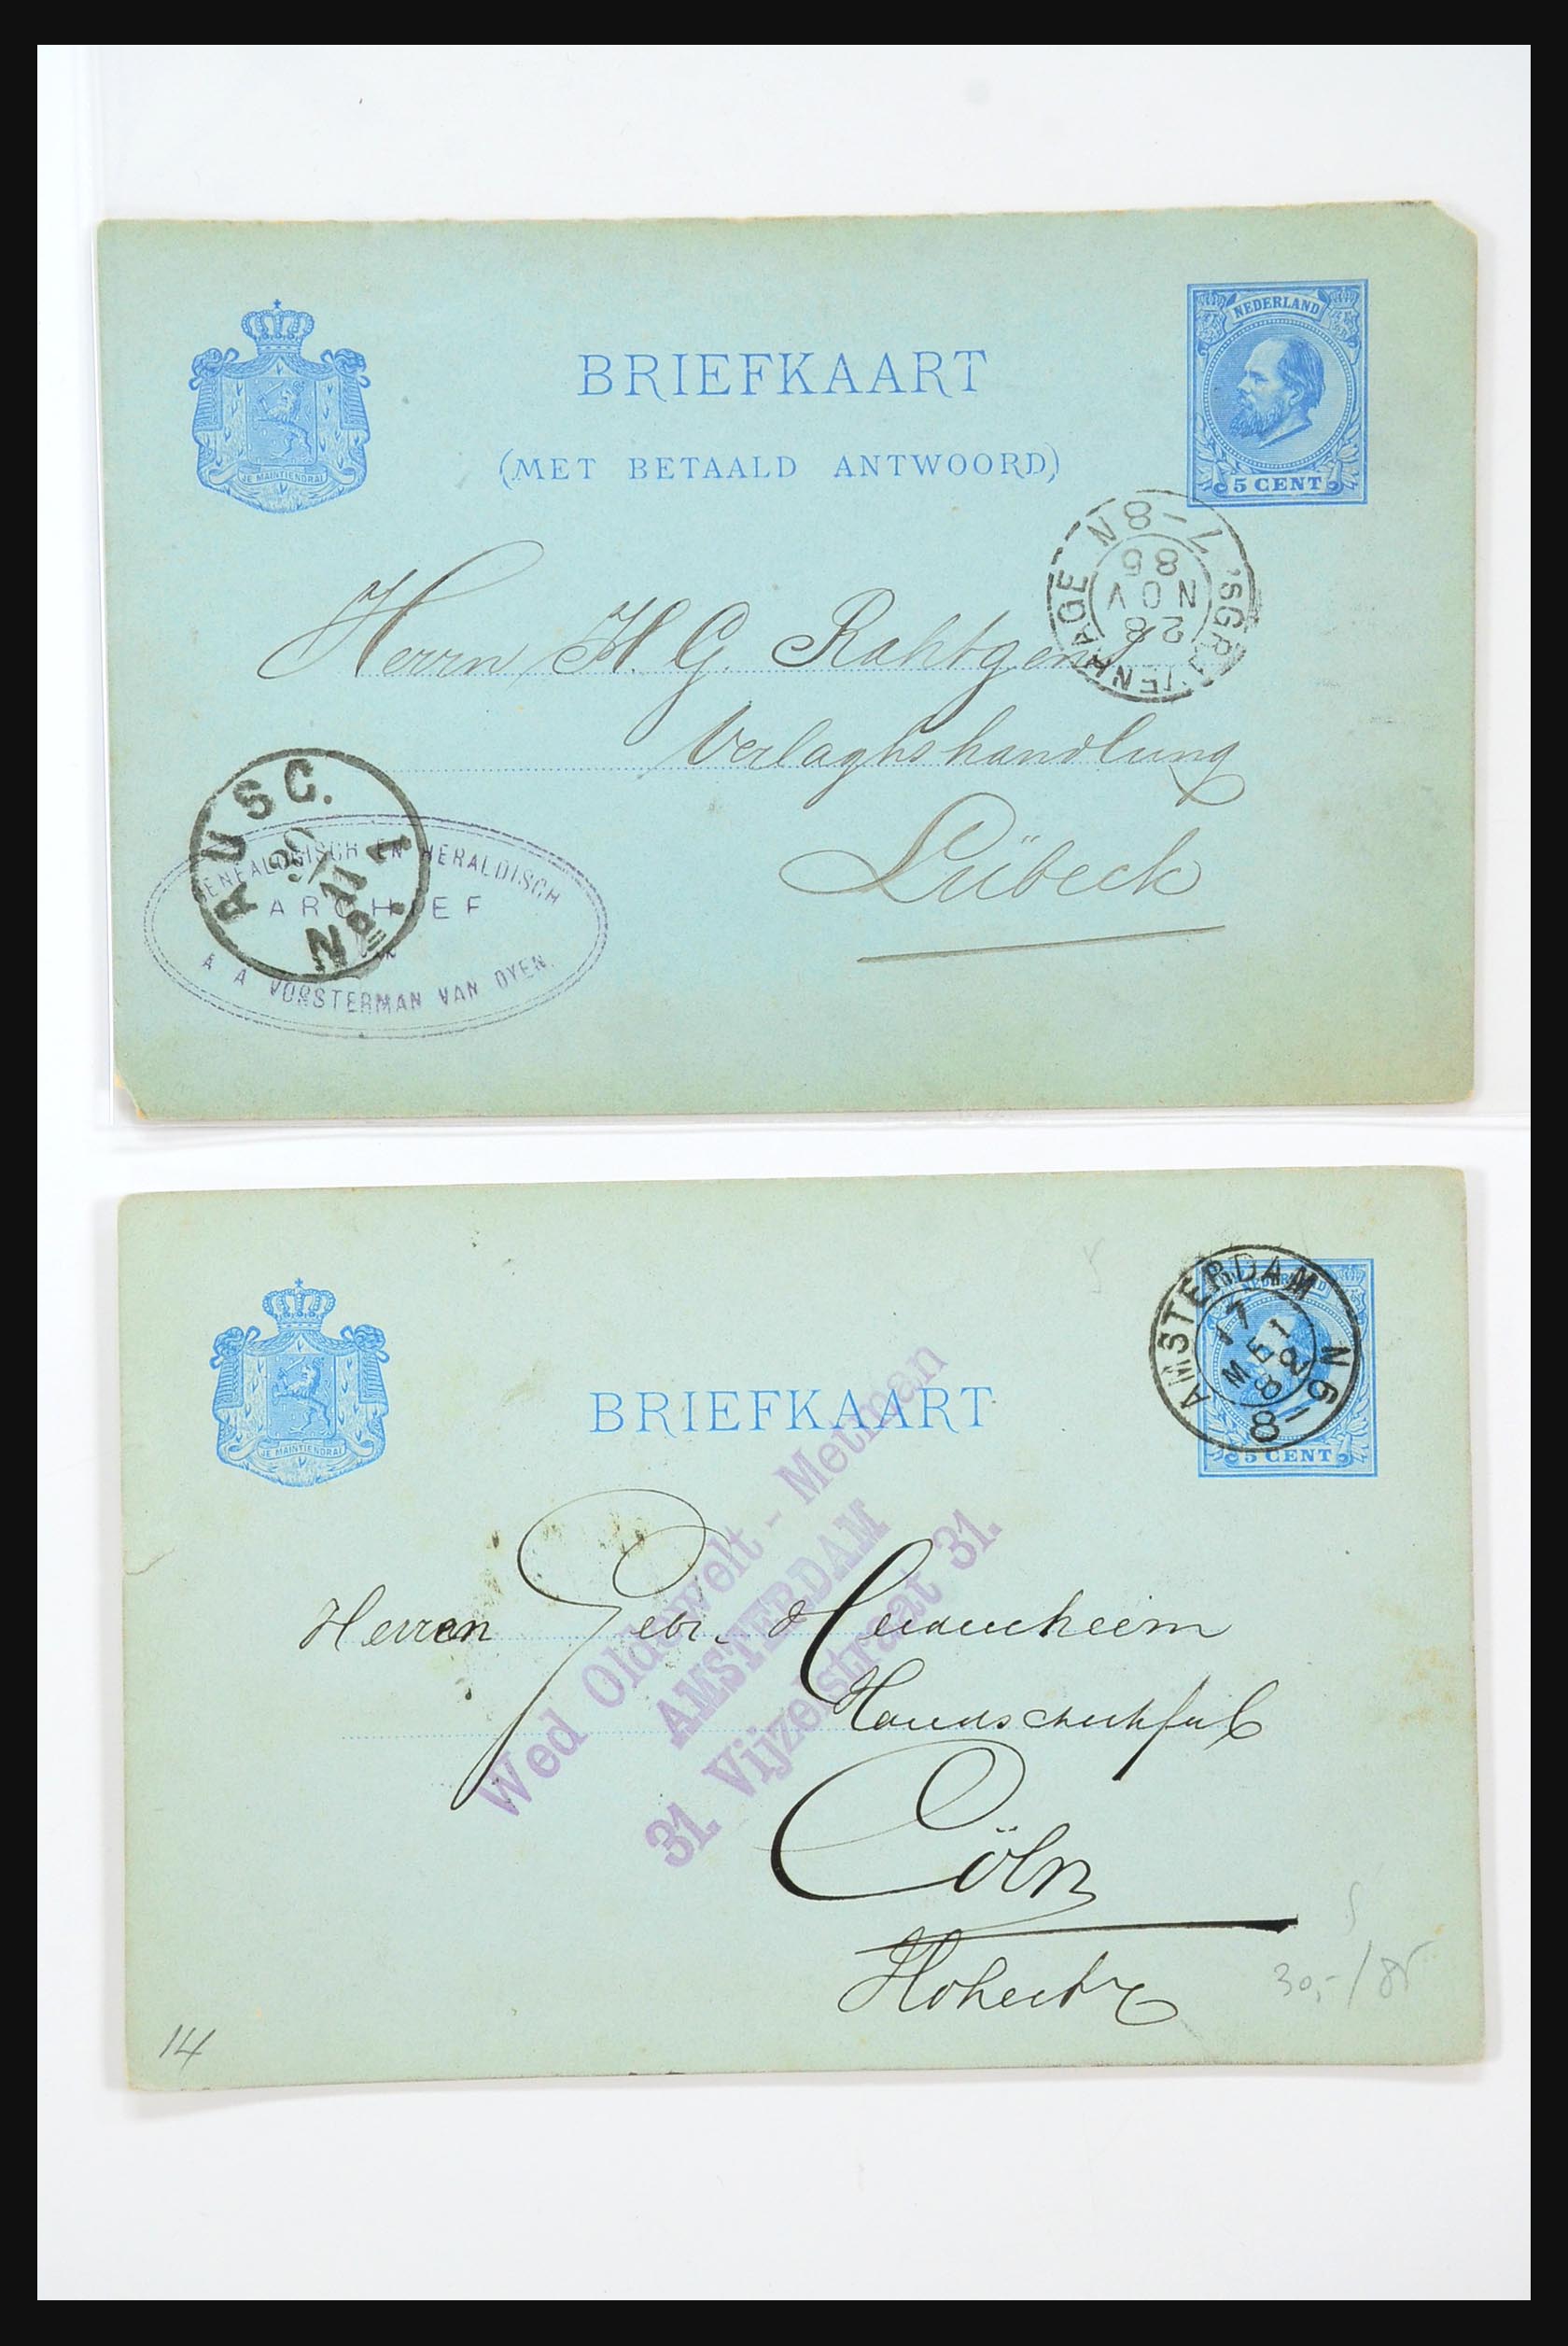 BRIEFKAART
(MET BETAALD ANTWOORD)
NEDERLAND
5 CENT
JE MAINTIENDRAI
'SGRAVENHAGE
7-8N
28
NOV
86
Herrn H. G. Rahtgens
Verlagshandlung
Lübeck
AUSG.
30/11 V
No. 1
GENEALOGISCH EN HERALDISCH
ARCHIEF
VAN
A A VORSTERMAN VAN OYEN.
BRIEFKAART
NEDERLAND
5 CENT
AMSTERDAM
17
MEI
82
8-9N
JE MAINTIENDRAI
Wed Oldewelt - Metman
AMSTERDAM
31. Vijzelstraat 31.
Herren Gebr.
Cöln
14
30,-/85